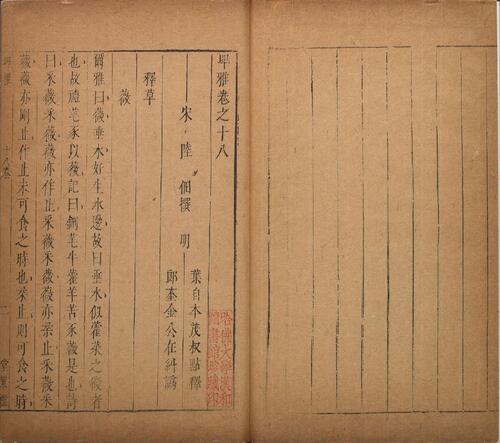 埤雅卷之十八
宋 陸 佃撰 明
葉自本茂叔點釋
郎奎金公在糾譌
釋草
薇
爾雅曰薇垂水好生水邊故曰垂水似藿菜之後者
也故禮芼豕以薇記曰鉶芼牛藿羊苦豕薇是也詩
曰采薇采薇薇亦作止采薇采薇薇亦柔止采薇采
薇薇亦剛止作止未可食之時也柔止則可食之時
埤雅 十八卷 一 堂策檻
哈佛大學漢和圖書館珍藏印